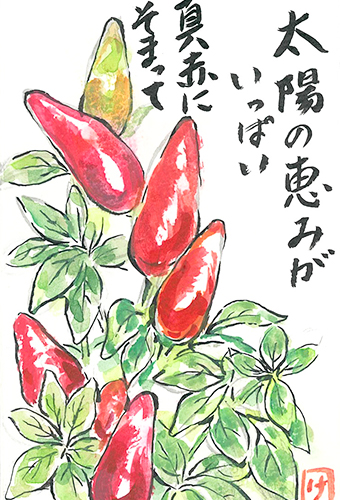 太陽の恵みが
いっぱい
真赤に
そまって
け